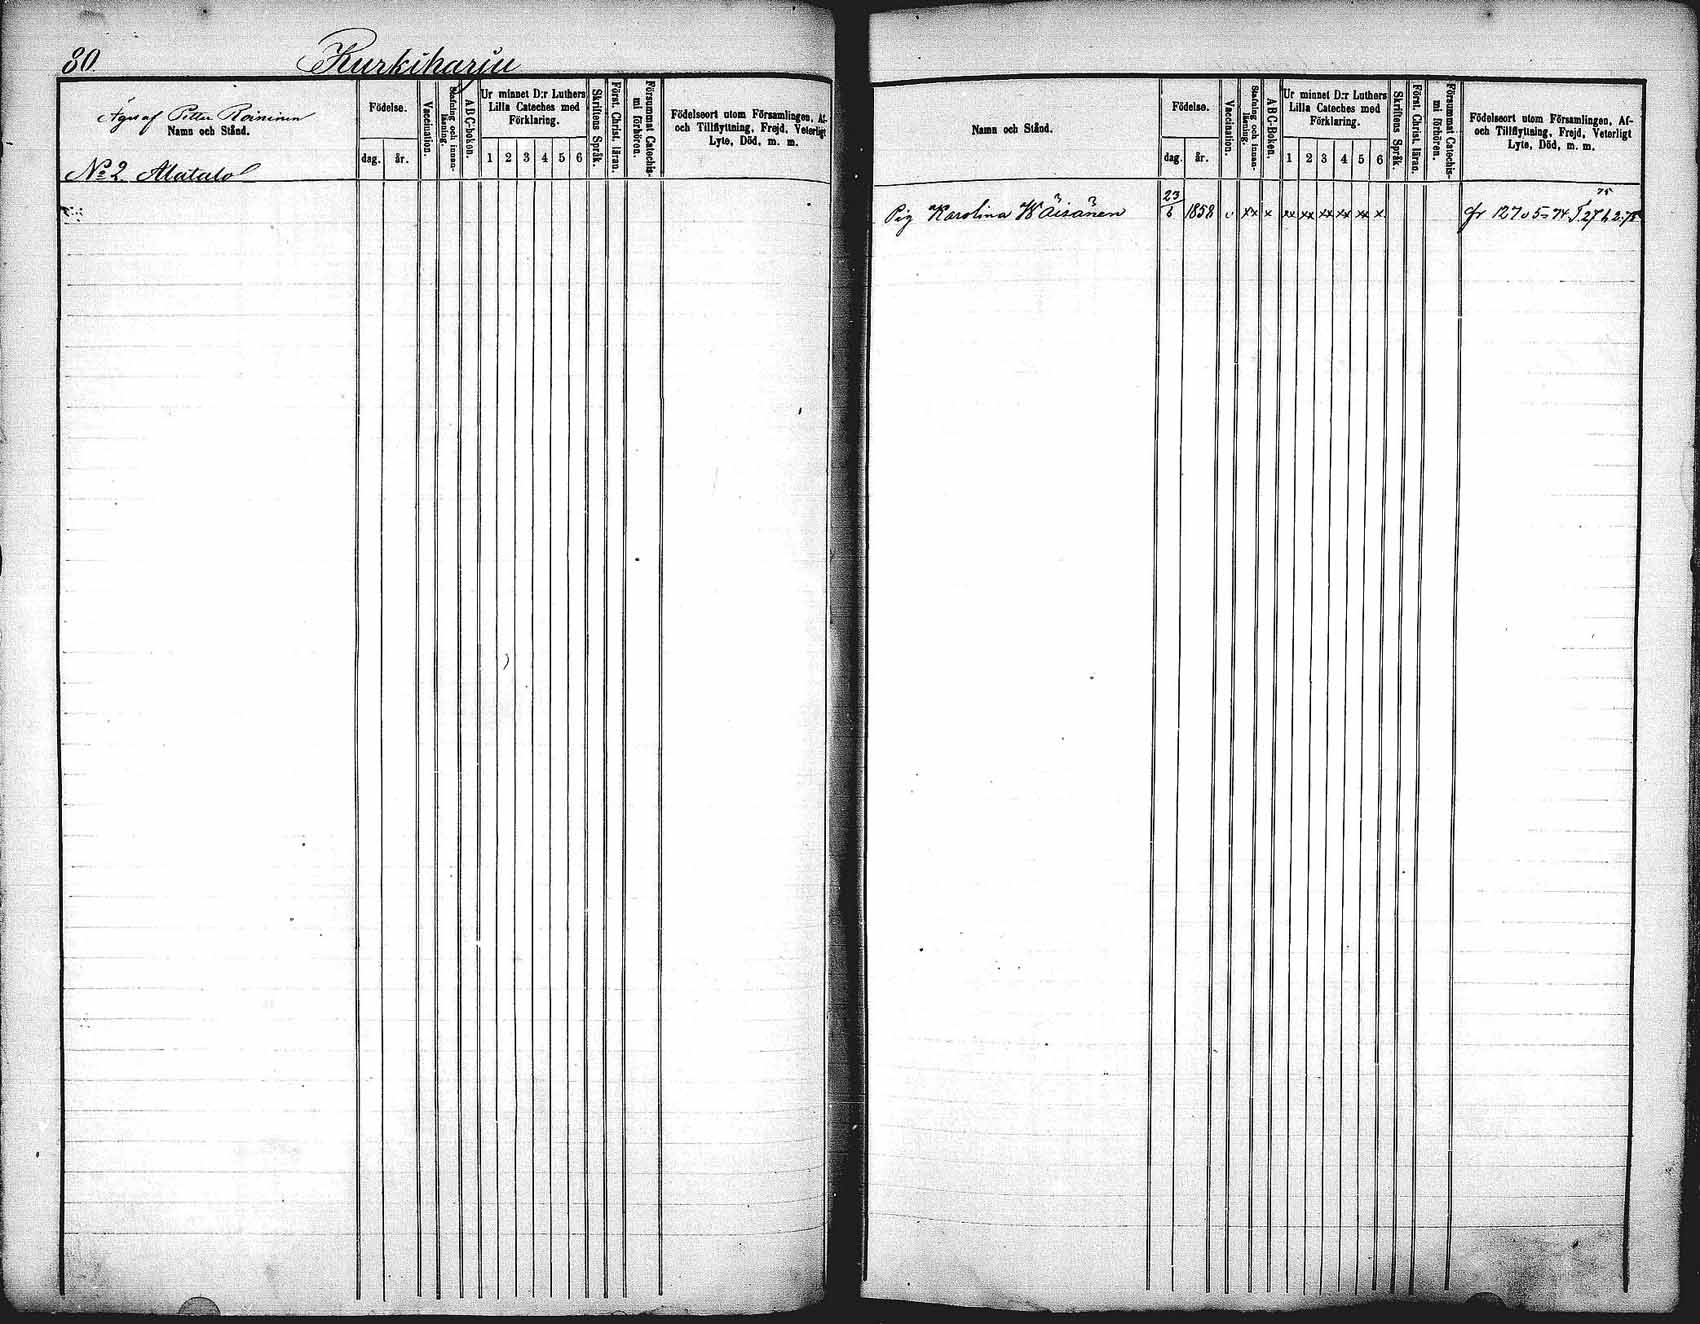 80.
Kurkiharju
Äges af Petter Roininen
Namn och Stånd.
Födelse.
dag.
år.
Vaccination.
Stafning och innan-
läsning.
ABC-boken.
Ur minnet D:r Luthers
Lilla Cateches med
Förklaring.
1 2 3 4 5 6
Skriftens Språk.
Först. Christ. läran.
Försummat Catechis-
mi förhören.
Födelseort utom Församlingen, Af-
och Tillflyttning, Frejd, Veterligt
Lyte, Död, m. m.
No 2 Alatalo
Namn och Stånd.
Födelse.
dag.
år.
Vaccination.
Stafning och innan-
läsning.
ABC-Boken.
Ur minnet D:r Luthers
Lilla Cateches med
Förklaring.
1 2 3 4 5 6
Skriftens Språk.
Först. Christ. läran.
Försummat Catechis-
mi förhören.
Födelseort utom Församlingen, Af-
och Tillflyttning, Frejd, Veterligt
Lyte, Död, m. m.
Pig Karolina Wäisänen 23/6 1858 v xx x xx xx xx xx xx x fr 127 v 5=74